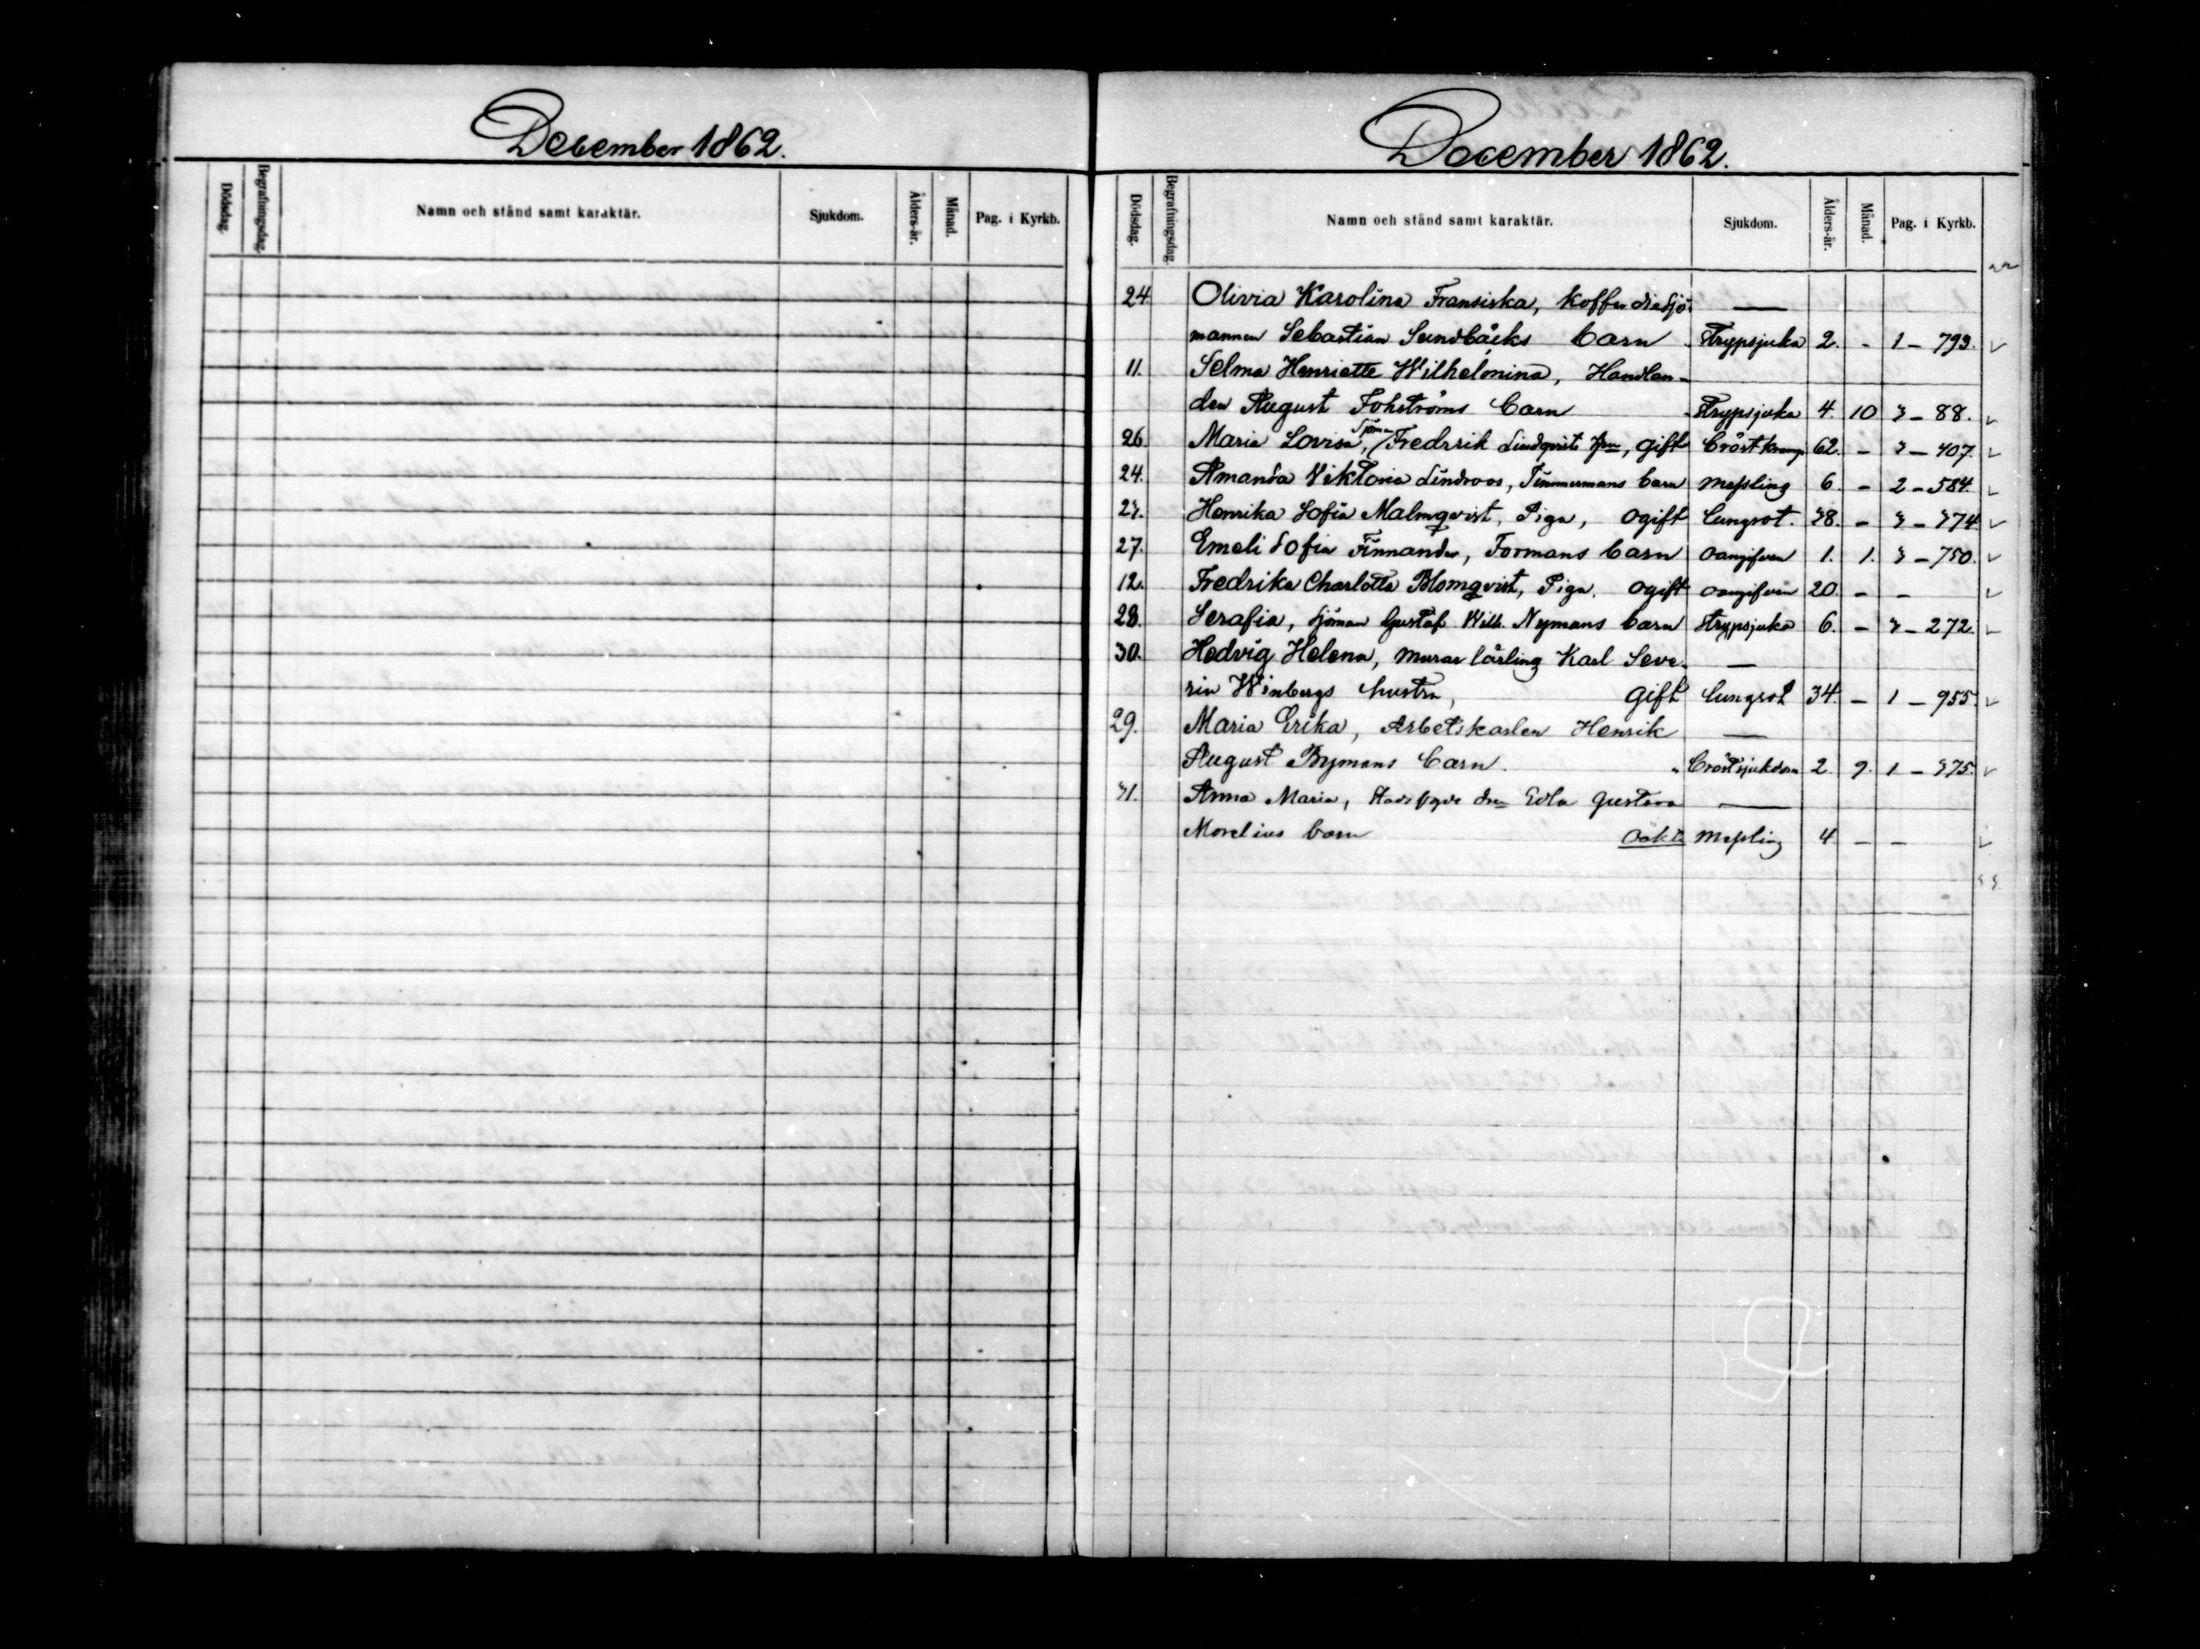 December 1862.
Dödsdag. Begrafningsdag. Namn och stånd samt karaktär. Sjukdom. Ålders-år. Månad. Pag. i Kyrkb.
December 1862.
Dödsdag. Begrafningsdag. Namn och stånd samt karaktär. Sjukdom. Ålders-år. Månad. Pag. i Kyrkb.
24 Olivia Karolina Fransiska, Kofferdiesjö- —
mannen Sebastian Sundbäcks barn Strypsjuka 2. - 1 - 793.
11. Selma Henriette Wilhelmina, Handlan-
den August Fohströms barn Strypsjuka 4. 10 3 - 88.
26. Maria Lovisa, Sjöman Fredrik Lindqvists hru, gift Bröstkramp 62. - 3 - 407.
24. Amanda Viktoria Lindroos, Timmermans barn Messling 6. - 2 - 584.
23. Henrika Sofia Malmqvist, Piga, ogift Lungsot. 38. - 3 - 374
27. Emeli Sofia Finnander, Formans barn oangifven 1. 1. 3 - 750.
12. Fredrika Charlotta Blomqvist, Piga. ogift oangifven 20. - -
28. Serafia, Sjöman Gustaf Wilh. Nymans barn Strypsjuka 6. - 3 - 272.
30. Hedvig Helena, murarlärling Karl Seve- —
rin Winbergs hustru, gift Lungsot 34. - 1 - 955.
29. Maria Erika, Arbetskarlen Henrik —
August Bymans barn. Bröstsjukdom 2. 9. 1 - 375.
31. Anna Maria, Edla Gustava —
Morelius barn oäkta Messling 4. - -